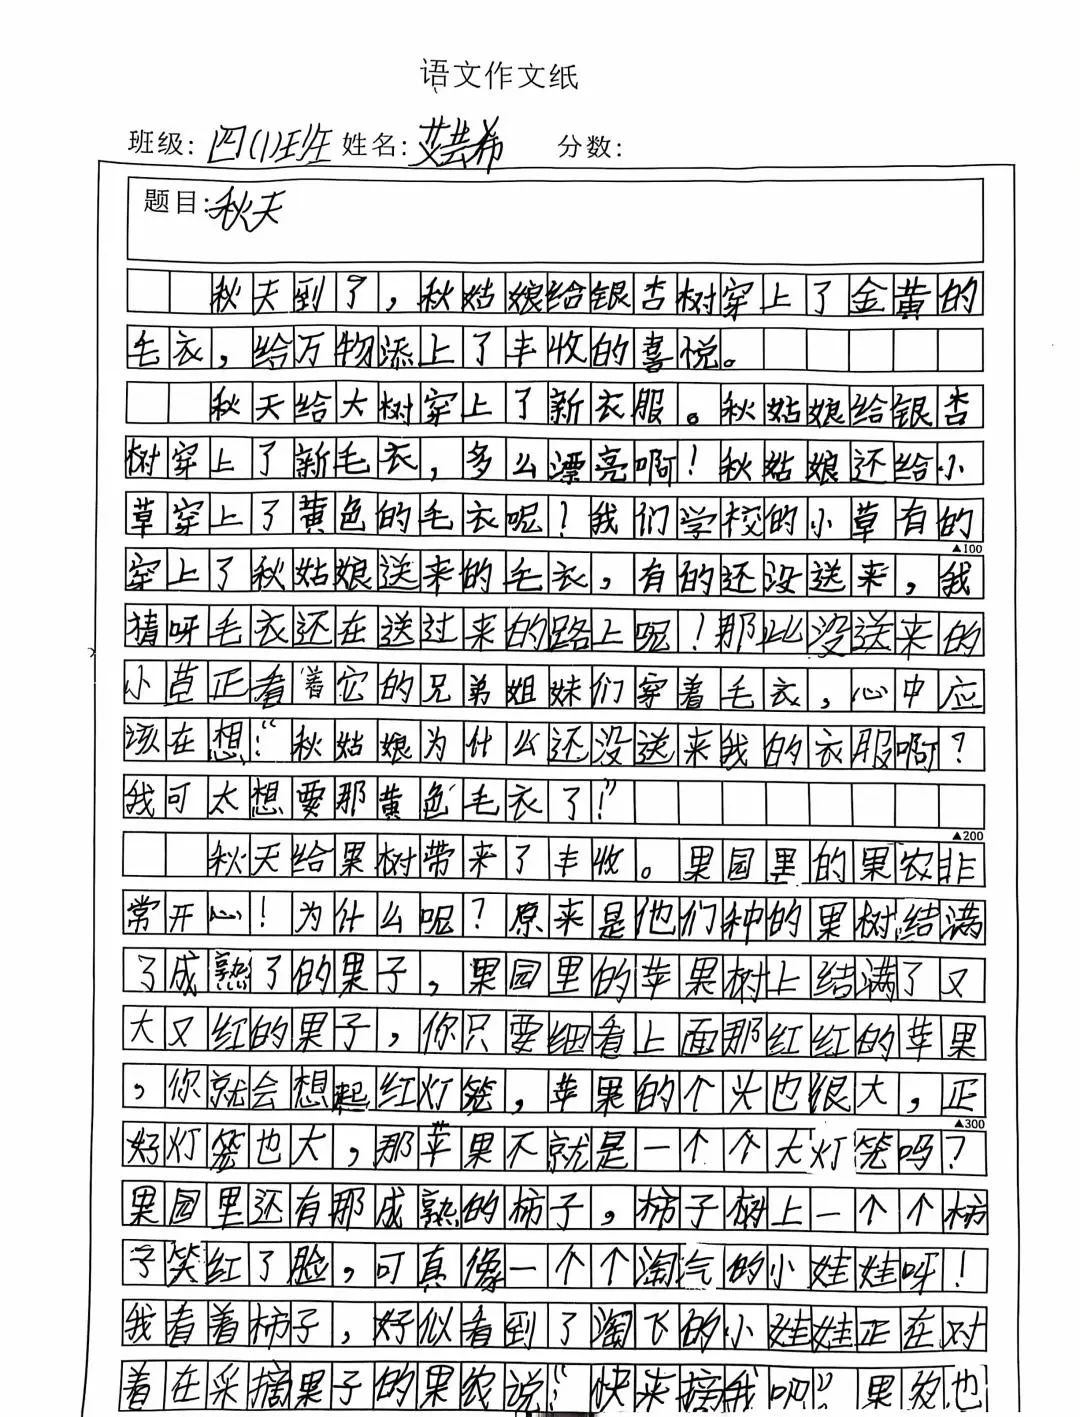 语文作文纸
班级: 四(1)班 姓名: 艾芸希 分数:
题目: 秋天
秋天到了，秋姑娘给银杏树穿上了金黄的
毛衣，给万物添上了丰收的喜悦。
秋天给大树穿上了新衣服。秋姑娘给银杏
树穿上了新毛衣，多么漂亮啊！秋姑娘还给小
草穿上了黄色的毛衣呢！我们学校的小草有的
▲100
穿上了秋姑娘送来的毛衣，有的还没送来，我
猜呀毛衣还在送过来的路上呢！那些没送来的
小草正看着它的兄弟姐妹们穿着毛衣，心中应
该在想：“秋姑娘为什么还没送来我的衣服啊？
我可太想要那黄色毛衣了！”
▲200
秋天给果树带来了丰收。果园里的果农非
常开心！为什么呢？原来是他们种的果树结满
了成熟了的果子，果园里的苹果树上结满了又
大又红的果子，你只要细看上面那红红的苹果
，你就会想起红灯笼，苹果的个头也很大，正
▲300
好灯笼也大，那苹果不就是一个个大灯笼吗？
果园里还有那成熟的柿子，柿子树上一个个柿
子笑红了脸，可真像一个个淘气的小娃娃呀！
我看着柿子，好似看到了淘气的小娃娃正在对
着在采摘果子的果农说：“快来摘我吧”果农也